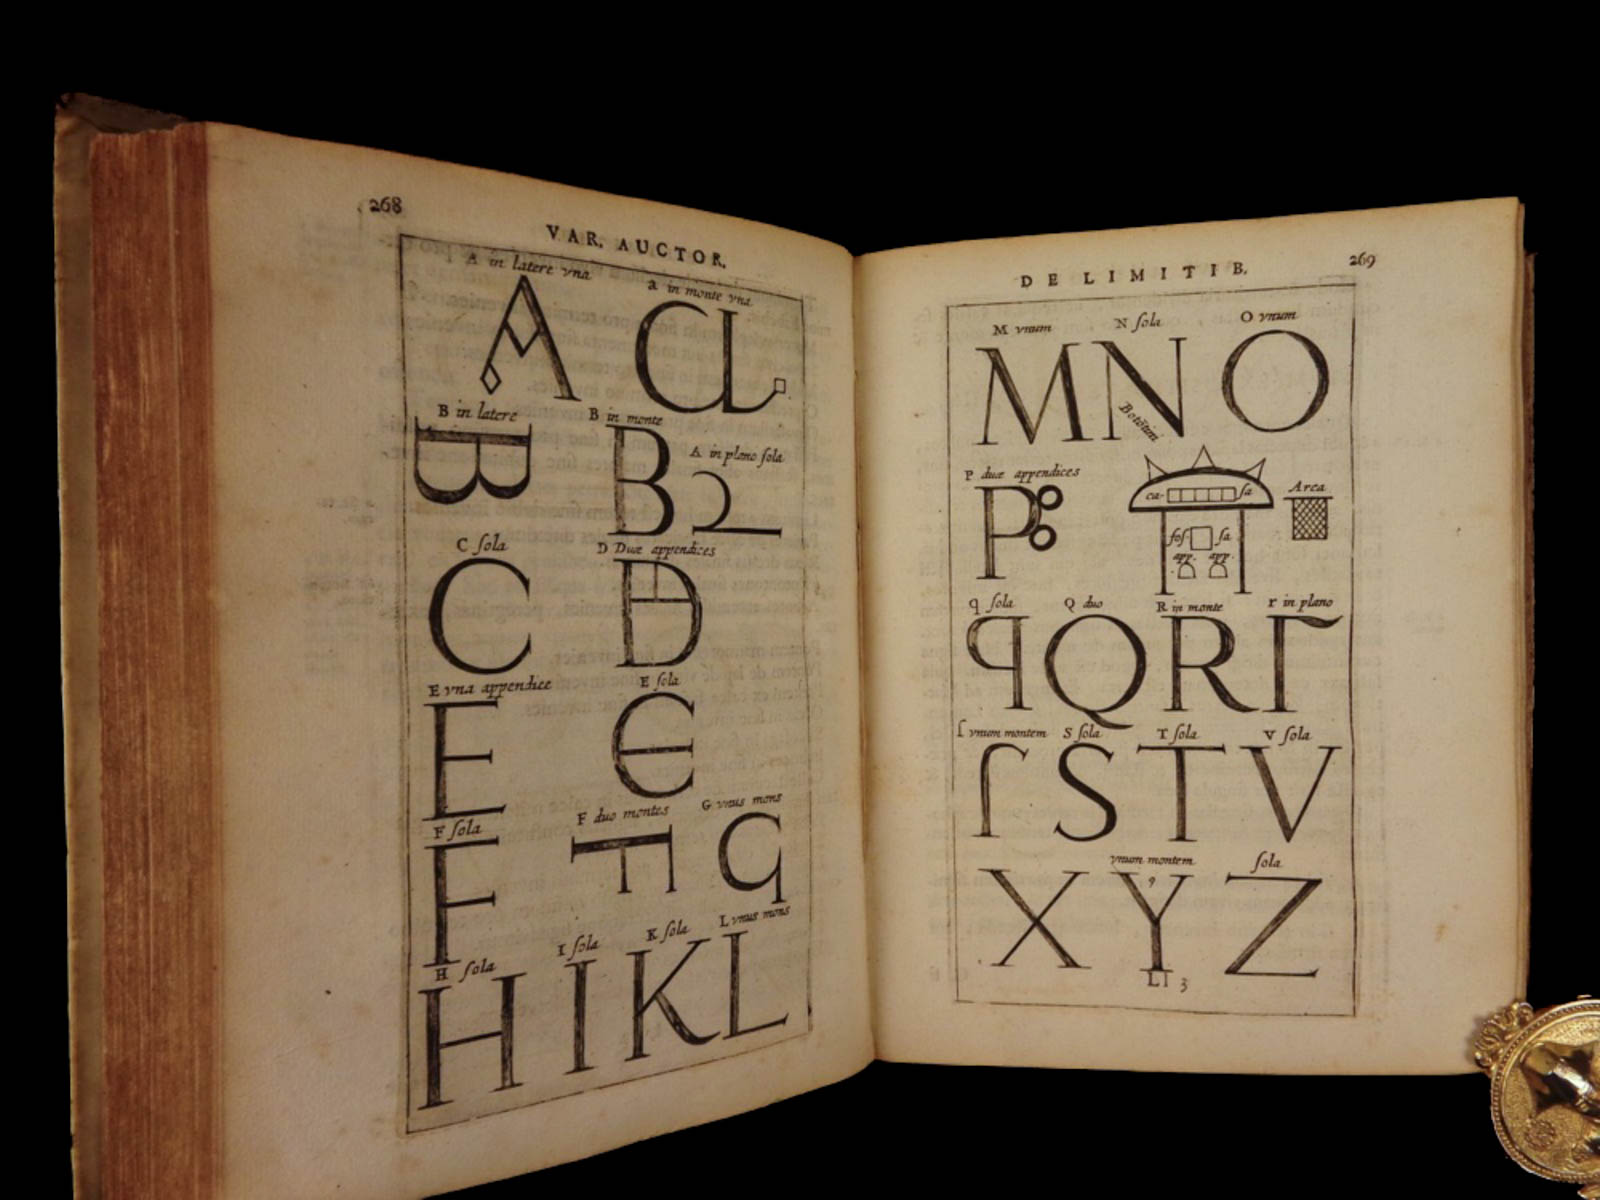 268
VAR. AUCTOR.
A in latere vna
a in monte vna
A
a
B in latere
B in monte
B
B
A in plano ſola
2
C ſola
D Duæ appendices
C
D
E vna appendice
E ſola
E
E
F ſola
F duo montes
G vnus mons
F
F
G
H ſola
I ſola
K ſola
L vnus mons
H I K L
269
DE LIMITIB.
M vnum
N ſola
O vnum
M N O
Botōtini
P duæ appendices
P
ca- ſa
foſ- ſa
app. app.
Arca
q ſola
Q duo
R in monte
r in plano
q Q R r
ſ vnum montem
S ſola
T ſola
V ſola
ſ S T V
vnum montem
ſola
X Y Z
Ll 3